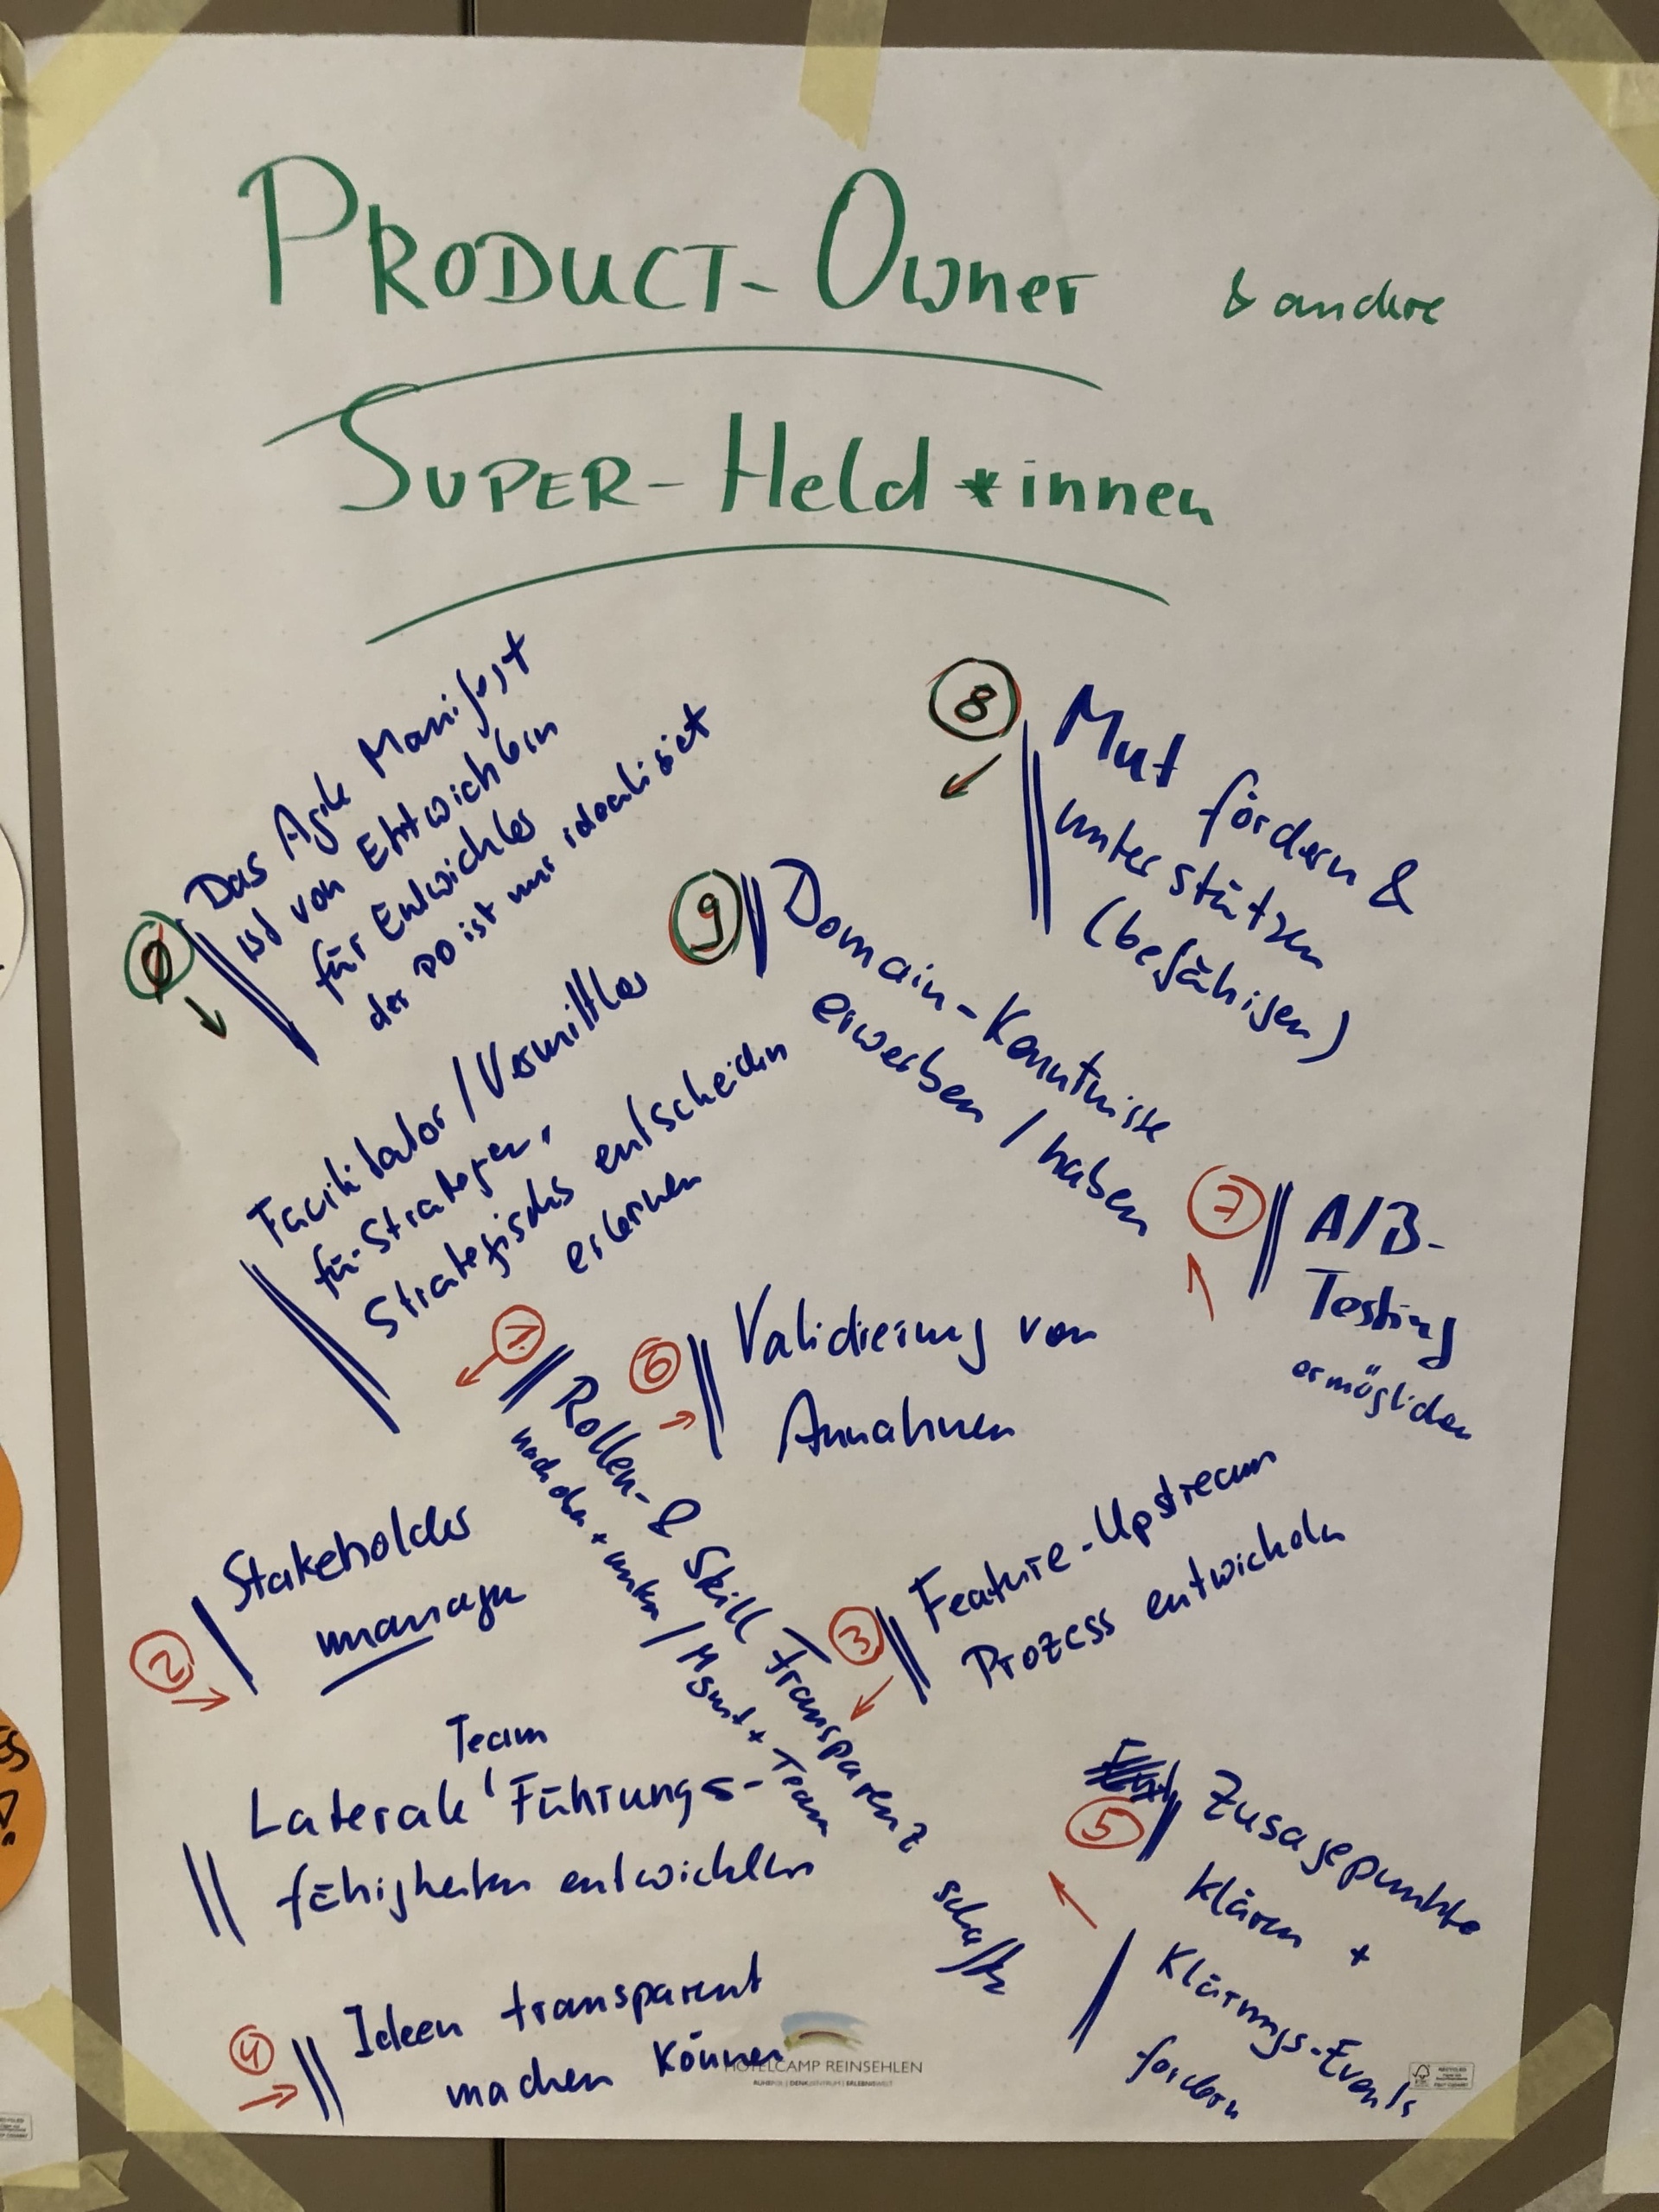 PRODUCT-Owner & andere
SUPER-Held*innen
0
Das Agile Manifest
ist von Entwicklern
für Entwickler
der PO ist nur idealisiert
8
Mut fördern &
unterstützen
(befähigen)
9
Domain-Kenntnisse
erwerben / haben
Facilitator / Vermittler
für Strategen,
Strategisches entscheiden
erlernen
7
A/B-
Testing
ermöglichen
1
Rollen- & Skill Transparenz schaffen
nach oben + unten / Mgmt + Team
6
Validierung von
Annahmen
2
Stakeholder
managen
3
Feature-Upstream
Prozess entwickeln
Team
Laterale Führungs-
fähigkeiten entwickeln
5
Zusagepunkte
klären +
Klärungs-Events
fordern
4
Ideen transparent
machen können
HOTELCAMP REINSEHLEN
FSC